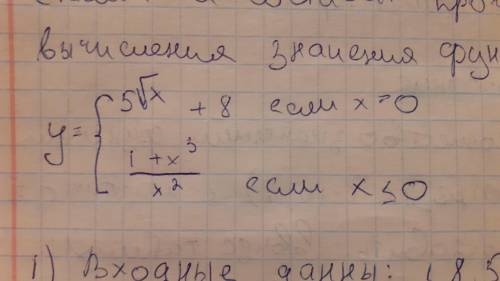 вычисления значения фун
y = { 5√x + 8 если x > 0
1 + x³ / x² если x ≤ 0
1) Входные данны: 18,5